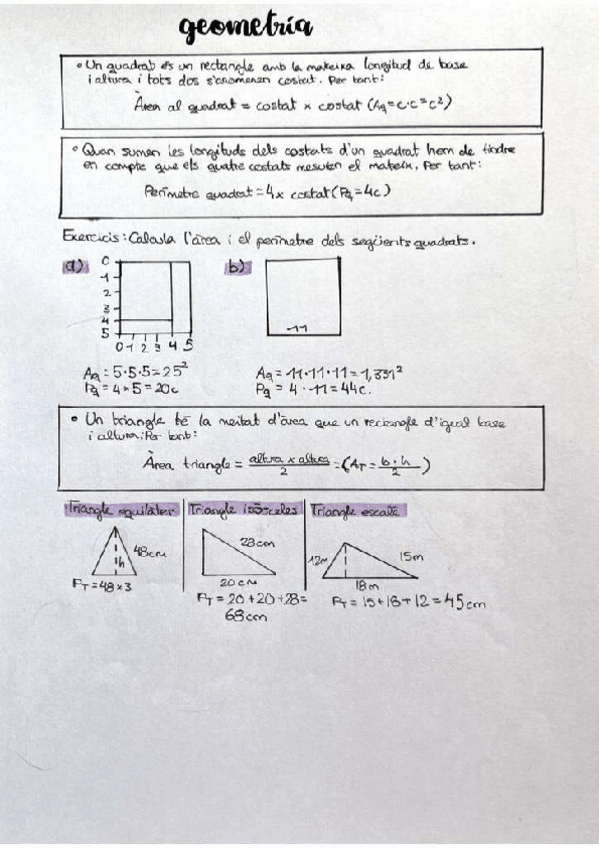 geometría
• Un quadrat és un rectangle amb la mateixa longitud de base
i altura i tots dos s'anomenen costat. Per tant:
Àrea al quadrat = costat x costat (Aq=c·c=c²)
• Quan sumen les longituds dels costats d'un quadrat hem de tindre
en compte que els quatre costats mesuren el mateix. Per tant:
Perímetre quadrat = 4 x costat (Pq=4c)
Exercicis: Calcula l'àrea i el perímetre dels següents quadrats.
a)
0
1
2
3
4
5
0 1 2 3 4 5
b)
11
Aq = 5·5·5 = 25²
Pq = 4 x 5 = 20c
Aq = 11·11·11 = 1,331²
Pq = 4 · 11 = 44c.
• Un triangle té la meitat d'àrea que un rectangle d'igual base
i altura. Per tant:
Àrea triangle = altura x altura / 2 = (AT = b·h / 2)
Triangle equilàter
48cm
h
PT = 48 x 3
Triangle isósceles
28cm
20cm
PT = 20 + 20 + 28 =
68cm
Triangle escalè
12m
15m
18m
PT = 15 + 18 + 12 = 45cm.